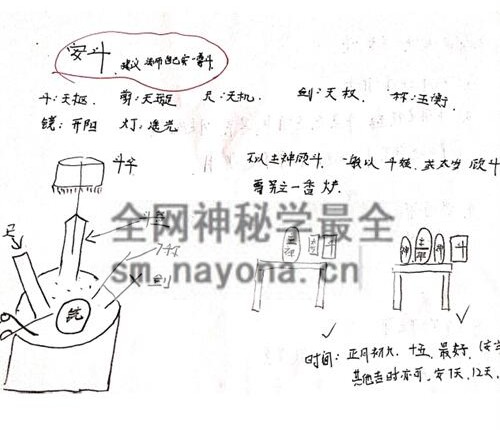 安斗 建议法师自己安一尊斗
斗:天枢 剪:天璇 尺:天机 剑:天权 秤:玉衡
镜:开阳 灯:遥光
斗伞
不以主神殿斗 一般以斗姥 或太岁 殿斗
需另立一香炉
全网神秘学最全
sm.nayona.cn
尺
秤
剑
镜
主神 斗
神 主神 神 斗
时间: 正月初九、十五 最好
其他吉时亦可, 安7天, 12天,